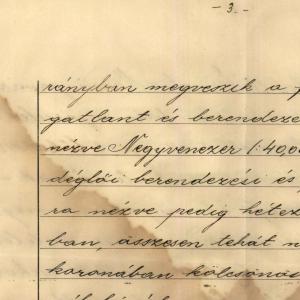 - 3. -
rányban megveszik a
gatlant és berendezé
nézve Negyvenezer /:40,0
déglői berendezési és
ra nézve pedig hétez
ban, összesen tehát n
koronában kölcsönös